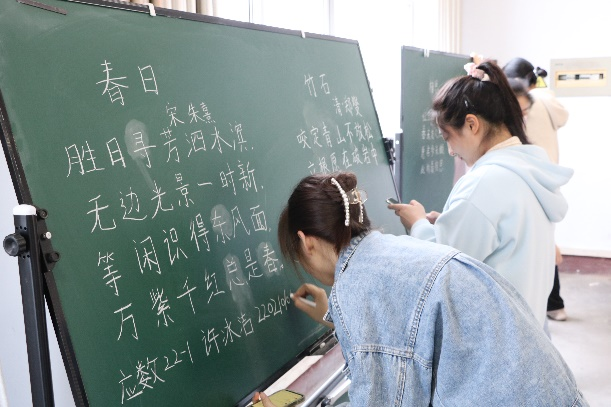 春日
宋 朱熹
胜日寻芳泗水滨,
无边光景一时新.
等闲识得东风面
万紫千红总是春.
应数22-1 许冰洁 22021
竹石
清 郑燮
咬定青山不放松
立根原在破岩中